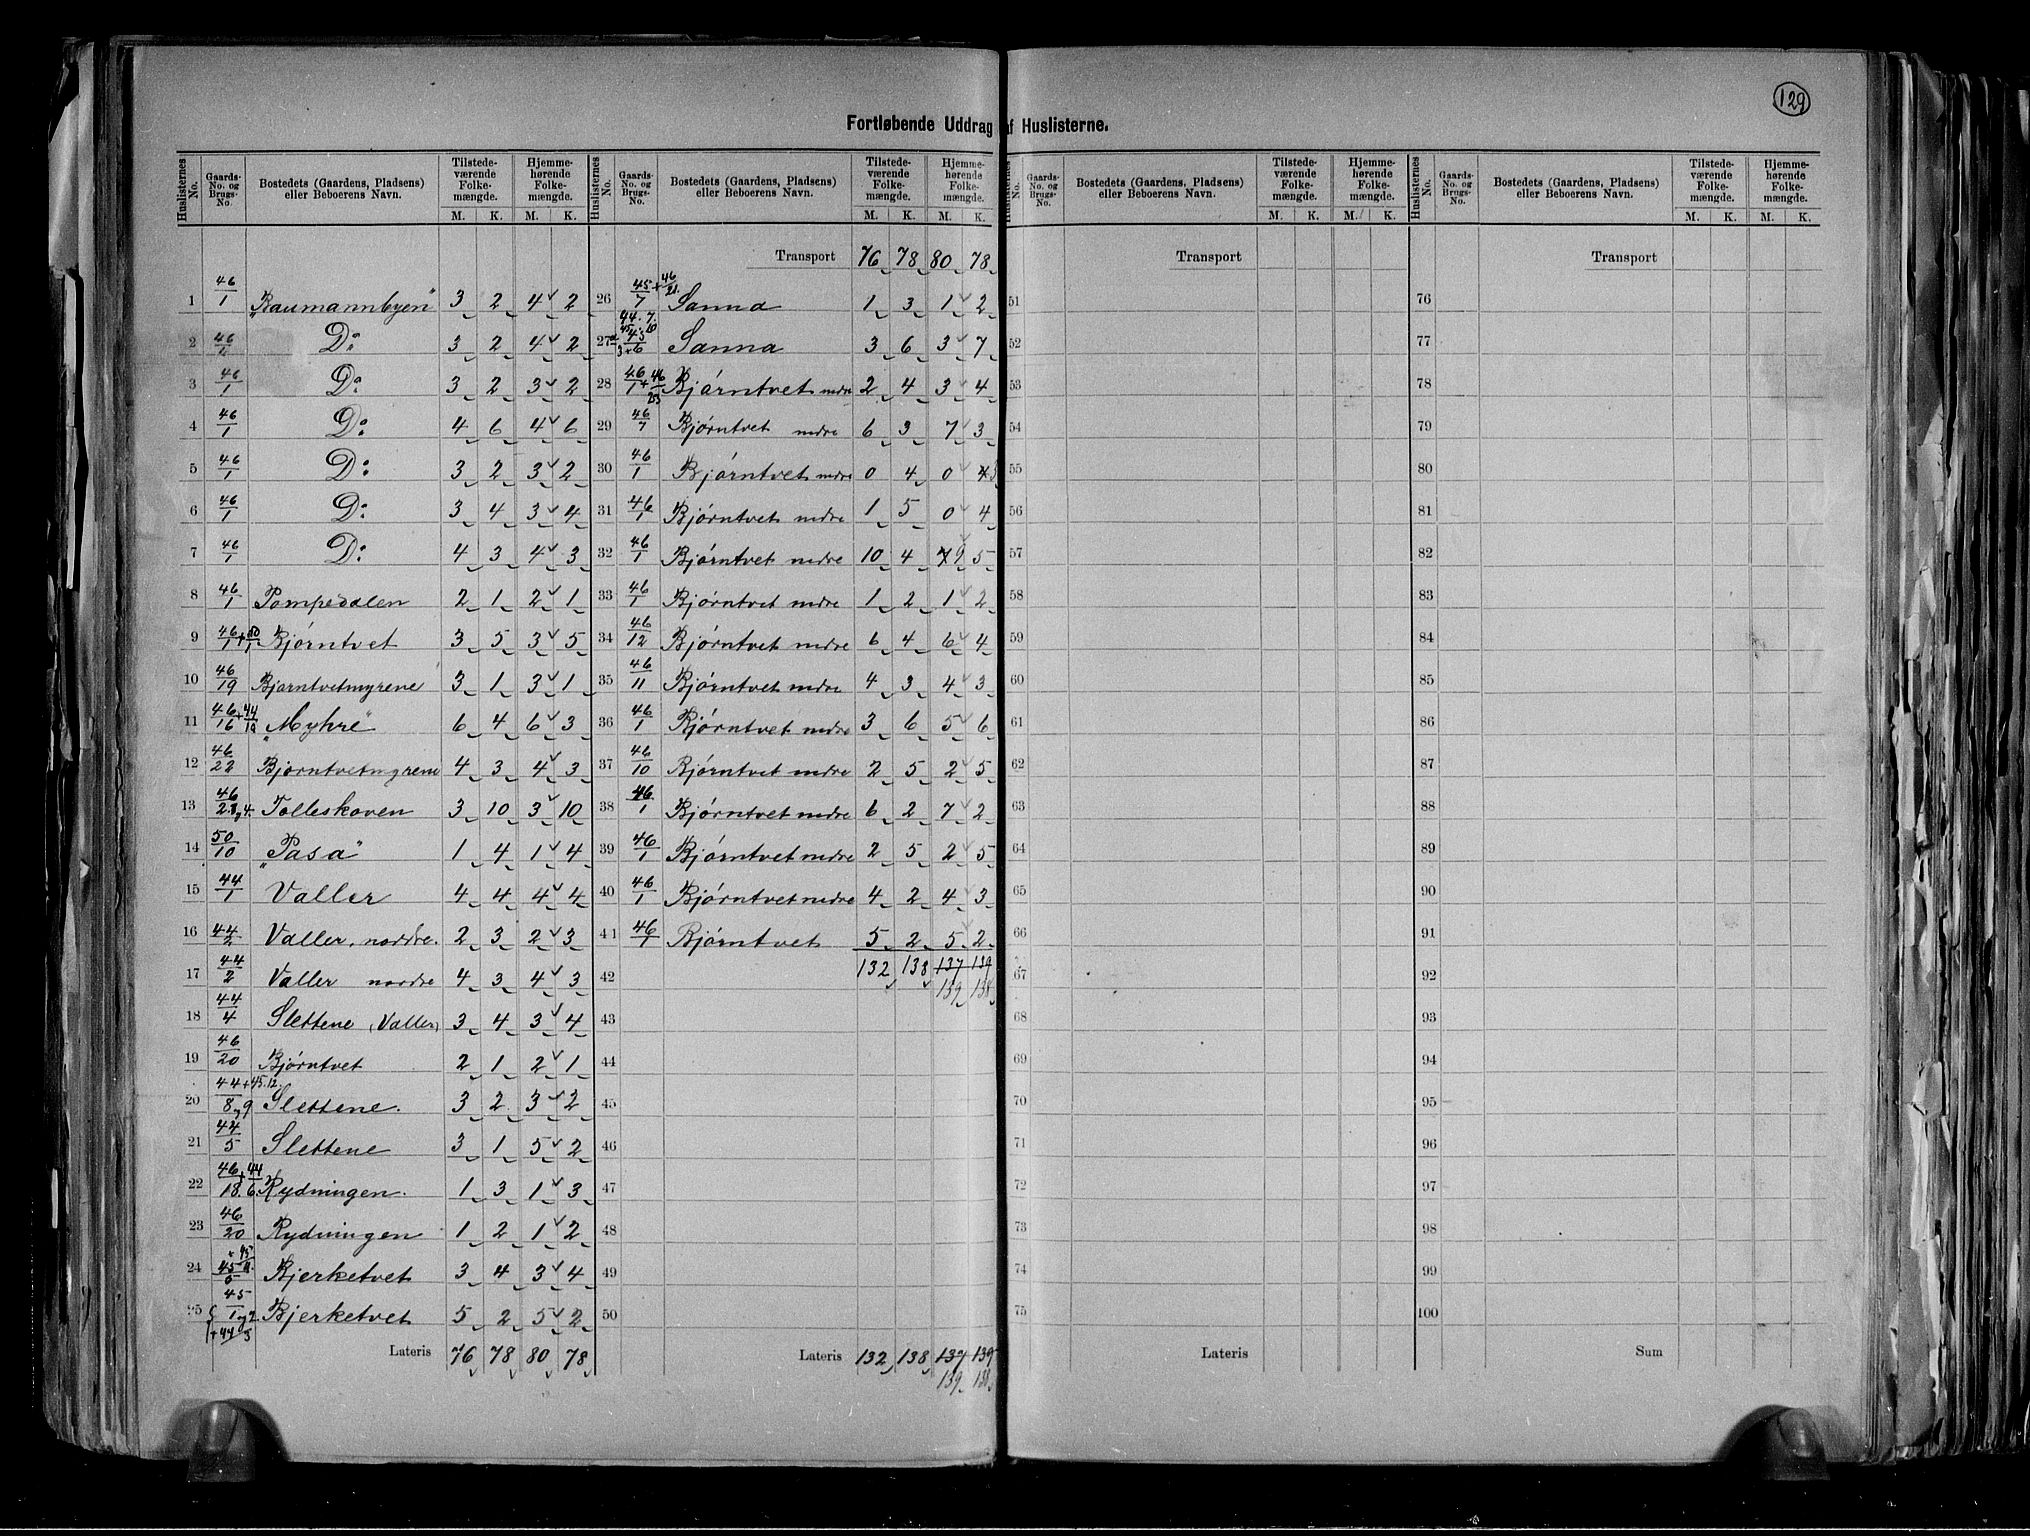 129
Fortløbende Uddrag af Huslisterne.
Huslisternes No. Gaards-No. og Brugs-No. Bostedets (Gaardens, Pladsens) eller Beboerens Navn. Tilstedeværende Folkemængde. M. K. Hjemmehørende Folkemængde. M. K.
1 46/1 "Baumannbyen" 3 2 4 2
2 46/1 Do 3 2 4 2
3 46/1 Do 3 2 3 2
4 46/1 Do 4 6 4 6
5 46/1 Do 3 2 3 2
6 46/1 Do 3 4 3 4
7 46/1 Do 4 3 4 3
8 46/1 Pompedalen 2 1 2 1
9 46/1 + 50/1 Bjørntvet 3 5 3 5
10 46/19 Bjørntvetmyrene 3 1 3 1
11 46/16 + 44/10 "Myhre" 6 4 6 3
12 46/22 Bjørntvetmyrene 4 3 4 3
13 46/2.3 og 4. Tolleskoven 3 10 3 10
14 50/10 "Pasa" 1 4 1 4
15 44/1 Valler 4 4 4 4
16 44/2 Valler, nordre. 2 3 2 3
17 44/2 Valler nordre 4 3 4 3
18 44/4 Slettene (Valler) 3 4 3 4
19 46/20 Bjørntvet 2 1 2 1
20 44/8 og 9 + 45.12. Slettene. 3 2 3 2
21 44/5 Slettene 3 1 5 2
22 46/18. + 44/6. Rydningen. 1 3 1 3
23 46/20 Rydningen 1 2 1 2
24 45/5 + 45/11. Bjerketvet 3 4 3 4
25 45/1 og 2. + 44/3 Bjerketvet 5 2 5 2
Lateris 76 78 80 78
Transport 76 78 80 78
26 45/7 + 46/21. Sanna 1 3 1 2
27 44.7. 45.10 45/3+6 Sanna 3 6 3 7
28 46/1 + 46/23 Bjørntvet nedre 2 4 3 4
29 46/7 Bjørntvet nedre 6 3 7 3
30 46/1 Bjørntvet nedre 0 4 0 4 3
31 46/1 Bjørntvet nedre 1 5 0 4
32 46/1 Bjørntvet nedre 10 4 7 9 5
33 46/1 Bjørntvet nedre 1 2 1 2
34 46/12 Bjørntvet nedre 6 4 6 4
35 46/11 Bjørntvet nedre 4 3 4 3
36 46/1 Bjørntvet nedre 3 6 5 6
37 46/10 Bjørntvet nedre 2 5 2 5
38 46/1 Bjørntvet nedre 6 2 7 2
39 46/1 Bjørntvet nedre 2 5 2 5
40 46/1 Bjørntvet nedre 4 2 4 3
41 46/1 Bjørntvet 5 2 5 2
42 132 138 137 139
139 138
43
44
45
46
47
48
49
50
Lateris 132 138 137 139
139 138
Huslisternes No. Gaards-No. og Brugs-No. Bostedets (Gaardens, Pladsens) eller Beboerens Navn. Tilstedeværende Folkemængde. M. K. Hjemmehørende Folkemængde. M. K.
Transport
51
52
53
54
55
56
57
58
59
60
61
62
63
64
65
66
67
68
69
70
71
72
73
74
75
Lateris
Transport
76
77
78
79
80
81
82
83
84
85
86
87
88
89
90
91
92
93
94
95
96
97
98
99
100
Sum